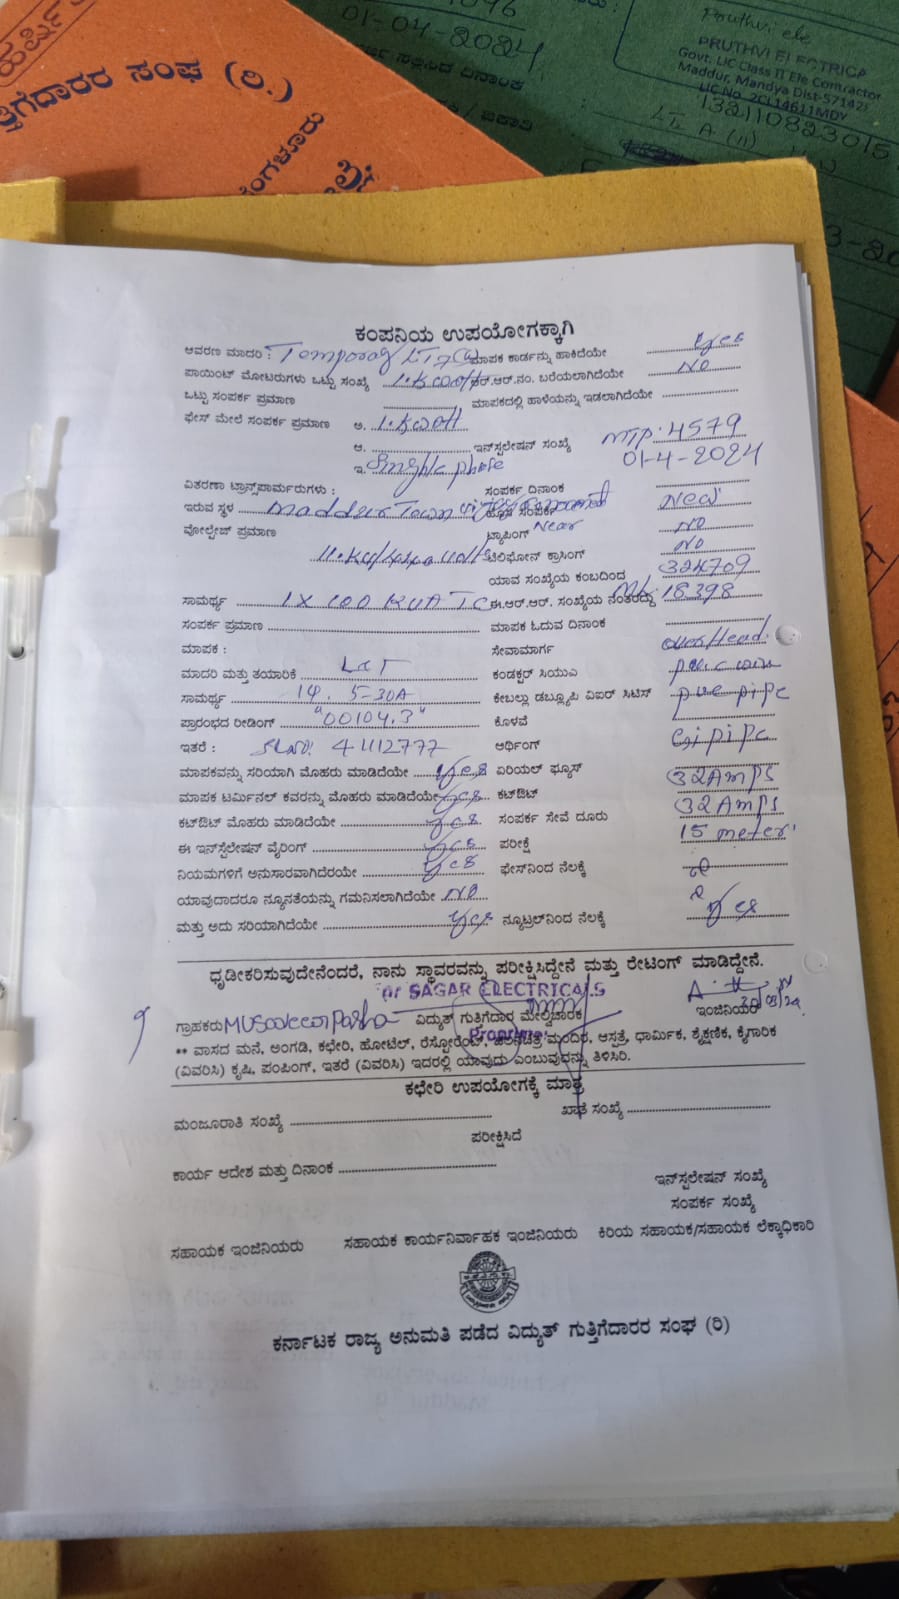 01-04-2024
Pruthvi ele
PRUTHVI ELECTRICA
Govt. LIC Class II Ele Contractor
Maddur, Mandya Dist-57142
LIC No. 2CL14611MDY
132110823015
ತ್ತಿಗೆದಾರರ ಸಂಘ (ರಿ.)
ಕಂಪನಿಯ ಉಪಯೋಗಕ್ಕಾಗಿ
ಆವರಣ ಮಾದರಿ : Temporary LT7 ಮಾಪಕ ಕಾರ್ಡನ್ನು ಹಾಕಿದೆಯೇ Yes
ಪಾಯಿಂಟ್ ಮೋಟರುಗಳು ಒಟ್ಟು ಸಂಖ್ಯೆ 1.Kwatt ಆರ್.ಆರ್.ನಂ. ಬರೆಯಲಾಗಿದೆಯೇ NO
ಒಟ್ಟು ಸಂಪರ್ಕ ಪ್ರಮಾಣ ಮಾಪಕದಲ್ಲಿ ಹಾಳೆಯನ್ನು ಇಡಲಾಗಿದೆಯೇ
ಫೇಸ್ ಮೇಲೆ ಸಂಪರ್ಕ ಪ್ರಮಾಣ ಅ. 1.Kwatt
ಆ. ಇನ್‌ಸ್ಟಲೇಷನ್ ಸಂಖ್ಯೆ MTP.4579
ಇ. Single phase 01-4-2024
ವಿತರಣಾ ಟ್ರಾನ್ಸ್‌ಪಾರ್ಮರುಗಳು : ಸಂಪರ್ಕ ದಿನಾಂಕ
ಇರುವ ಸ್ಥಳ Maddur Town ಹೊಸ ಸಂಪರ್ಕ New
ವೋಲ್ಟೇಜ್ ಪ್ರಮಾಣ ಟ್ಯಾಪಿಂಗ್ Near NO
ಟೆಲಿಫೋನ್ ಕ್ರಾಸಿಂಗ್ NO
ಯಾವ ಸಂಖ್ಯೆಯ ಕಂಬದಿಂದ 324709
ಸಾಮರ್ಥ್ಯ 1X100 KVA TC ಈ.ಆರ್.ಆರ್. ಸಂಖ್ಯೆಯ ನಂತರದ್ದು 18398
ಸಂಪರ್ಕ ಪ್ರಮಾಣ ಮಾಪಕ ಓದುವ ದಿನಾಂಕ
ಮಾಪಕ : ಸೇವಾಮಾರ್ಗ over Head
ಮಾದರಿ ಮತ್ತು ತಯಾರಿಕೆ L&T ಕಂಡಕ್ಟರ್ ಸಿಯುಎ pvc wire
ಸಾಮರ್ಥ್ಯ 1φ. 5-30A ಕೇಬಲ್ಲು ಡಬ್ಲ್ಯೂಪಿ ವಿಐರ್ ಸಿಟಿಸ್ pvc pipe
ಪ್ರಾರಂಭದ ರೀಡಿಂಗ್ "00104.3" ಕೊಳವೆ
ಇತರೆ : SLNO: 4112777 ಅರ್ಥಿಂಗ್ Gi pipe
ಮಾಪಕವನ್ನು ಸರಿಯಾಗಿ ಮೊಹರು ಮಾಡಿದೆಯೇ Yes ಏರಿಯಲ್ ಫ್ಯೂಸ್
ಮಾಪಕ ಟರ್ಮಿನಲ್ ಕವರನ್ನು ಮೊಹರು ಮಾಡಿದೆಯೇ Yes ಕಟ್‌ಔಟ್ 32Amps
ಕಟ್‌ಔಟ್ ಮೊಹರು ಮಾಡಿದೆಯೇ Yes ಸಂಪರ್ಕ ಸೇವೆ ದೂರು 32 Amps
ಈ ಇನ್‌ಸ್ಟೆಲೇಷನ್ ವೈರಿಂಗ್ Yes ಪರೀಕ್ಷೆ 15 meter
ನಿಯಮಗಳಿಗೆ ಅನುಸಾರವಾಗಿದೆರಯೇ Yes ಫೇಸ್‌ನಿಂದ ನೆಲಕ್ಕೆ
ಯಾವುದಾದರೂ ನ್ಯೂನತೆಯನ್ನು ಗಮನಿಸಲಾಗಿದೆಯೇ NO
ಮತ್ತು ಅದು ಸರಿಯಾಗಿದೆಯೇ Yes ನ್ಯೂಟ್ರಲ್‌ನಿಂದ ನೆಲಕ್ಕೆ Yes
ಧೃಡೀಕರಿಸುವುದೇನೆಂದರೆ, ನಾನು ಸ್ಥಾವರವನ್ನು ಪರೀಕ್ಷಿಸಿದ್ದೇನೆ ಮತ್ತು ರೇಟಿಂಗ್ ಮಾಡಿದ್ದೇನೆ.
For SAGAR ELECTRICALS
ಗ್ರಾಹಕರು ವಿದ್ಯುತ್ ಗುತ್ತಿಗೆದಾರ ಮೇಲ್ವಿಚಾರಕ ಇಂಜಿನಿಯರ್
** ವಾಸದ ಮನೆ, ಅಂಗಡಿ, ಕಛೇರಿ, ಹೋಟೆಲ್, ರೆಸ್ಟೋರೆಂಟ್, ಚಲನಚಿತ್ರ ಮಂದಿರ, ಆಸ್ಪತ್ರೆ, ಧಾರ್ಮಿಕ, ಶೈಕ್ಷಣಿಕ, ಕೈಗಾರಿಕ
(ವಿವರಿಸಿ) ಕೃಷಿ, ಪಂಪಿಂಗ್, ಇತರೆ (ವಿವರಿಸಿ) ಇದರಲ್ಲಿ ಯಾವುದು ಎಂಬುವುದನ್ನು ತಿಳಿಸಿರಿ.
ಕಛೇರಿ ಉಪಯೋಗಕ್ಕೆ ಮಾತ್ರ
ಮಂಜೂರಾತಿ ಸಂಖ್ಯೆ ಖಾತೆ ಸಂಖ್ಯೆ
ಪರೀಕ್ಷಿಸಿದೆ
ಕಾರ್ಯ ಆದೇಶ ಮತ್ತು ದಿನಾಂಕ
ಇನ್‌ಸ್ಟಲೇಷನ್ ಸಂಖ್ಯೆ
ಸಂಪರ್ಕ ಸಂಖ್ಯೆ
ಸಹಾಯಕ ಇಂಜಿನಿಯರು ಸಹಾಯಕ ಕಾರ್ಯನಿರ್ವಾಹಕ ಇಂಜಿನಿಯರು ಕಿರಿಯ ಸಹಾಯಕ/ಸಹಾಯಕ ಲೆಕ್ಕಾಧಿಕಾರಿ
ಕರ್ನಾಟಕ ರಾಜ್ಯ ಅನುಮತಿ ಪಡೆದ ವಿದ್ಯುತ್ ಗುತ್ತಿಗೆದಾರರ ಸಂಘ (ರಿ)